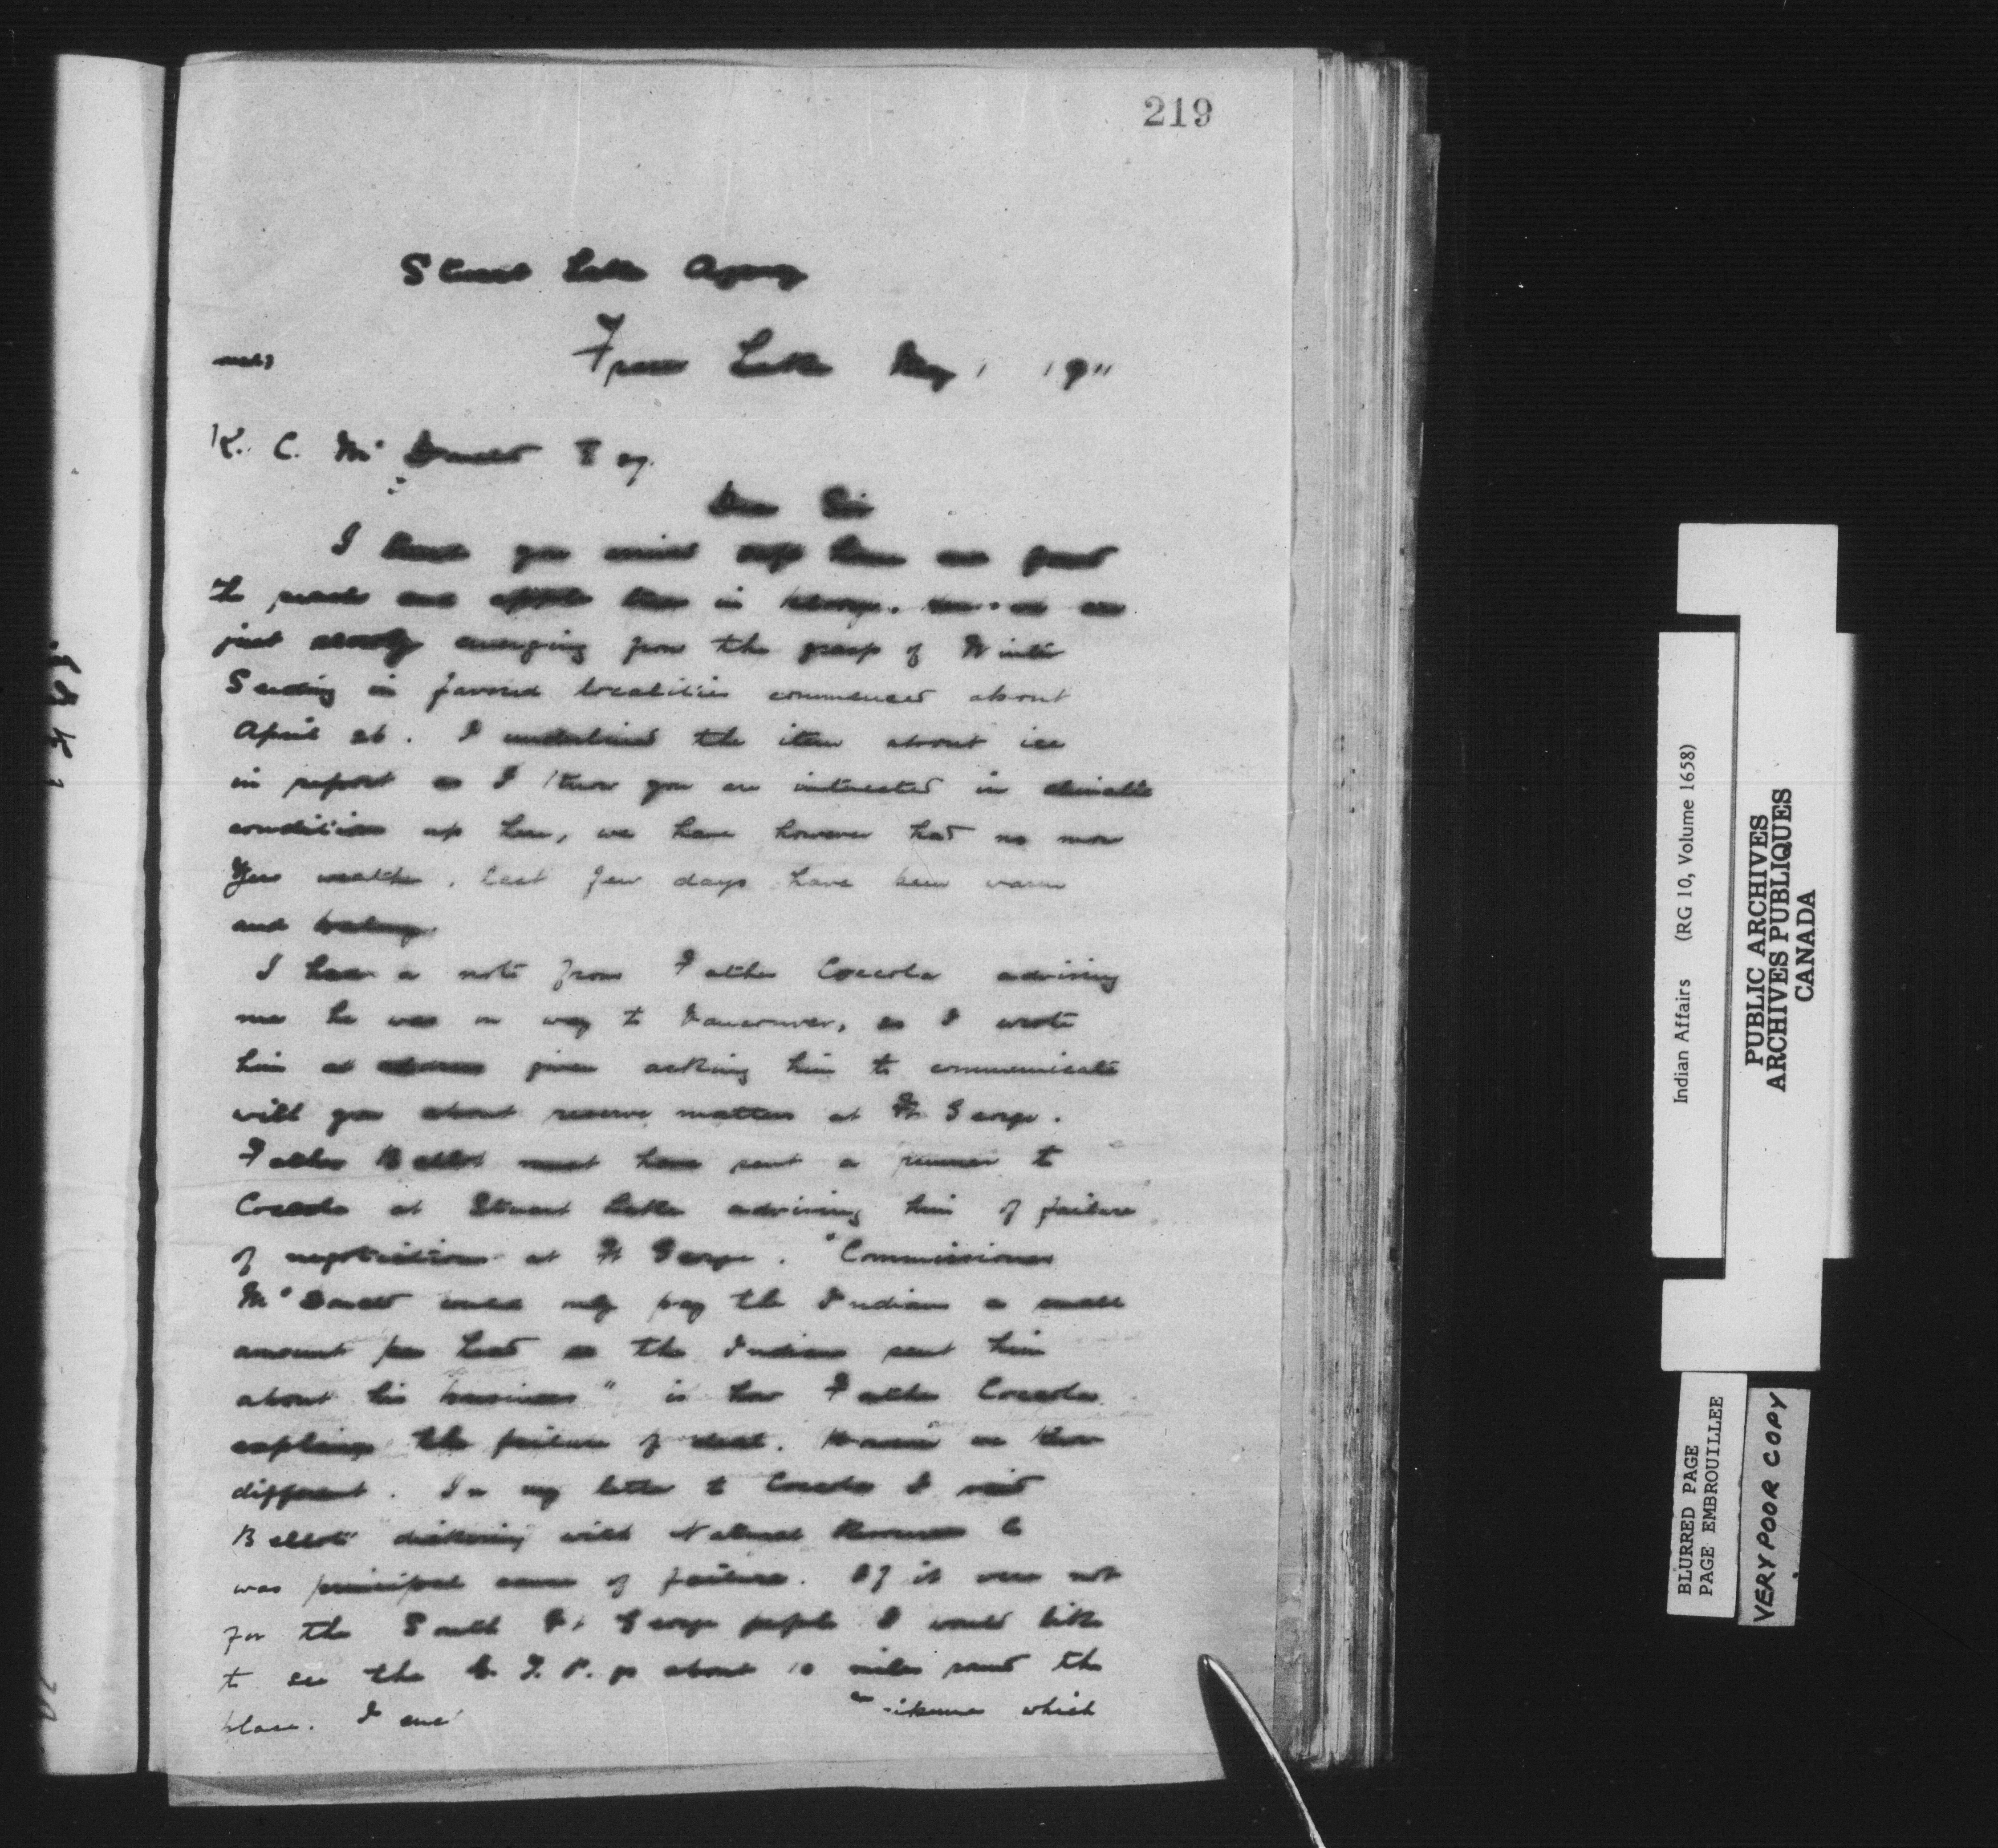 219
Stuart Lake Agency
Fraser Lake May 1 1911
K. C. McDonald Esq.
Dear Sir
I you must have
The peach and apple trees in
just slowly emerging from the grasp of Winter
Seeding in favored localities commenced about
April 26. I underlined the item about ice
in report as I know you are interested in climatic
conditions up here, we have however had no more
weather. Last few days have been warm
and
I have a note from Father Coccola advising
me he was on way to Vancouver, so I wrote
him at address given asking him to communicate
with you about reserve matters at Ft George.
Father Bellot must have sent a runner to
Coccola at Stuart Lake advising him of failure
of negotiations at Ft George. "Commissioner
McDonald could only pay the Indians a small
amount per head so the Indians sent him
about his business" is how Father Coccola
explains the failure of deal.
different. In my letter to Coccola I said
Bellot dickering with Natural Resources Co
was principal cause of failure. If it were not
for the South Ft George people I would like
to see the G. T. P. go about 10 miles round the
place. I
which
Indian Affairs (RG 10, Volume 1658)
PUBLIC ARCHIVES
ARCHIVES PUBLIQUES
CANADA
BLURRED PAGE
PAGE EMBROUILLEE
VERY POOR COPY